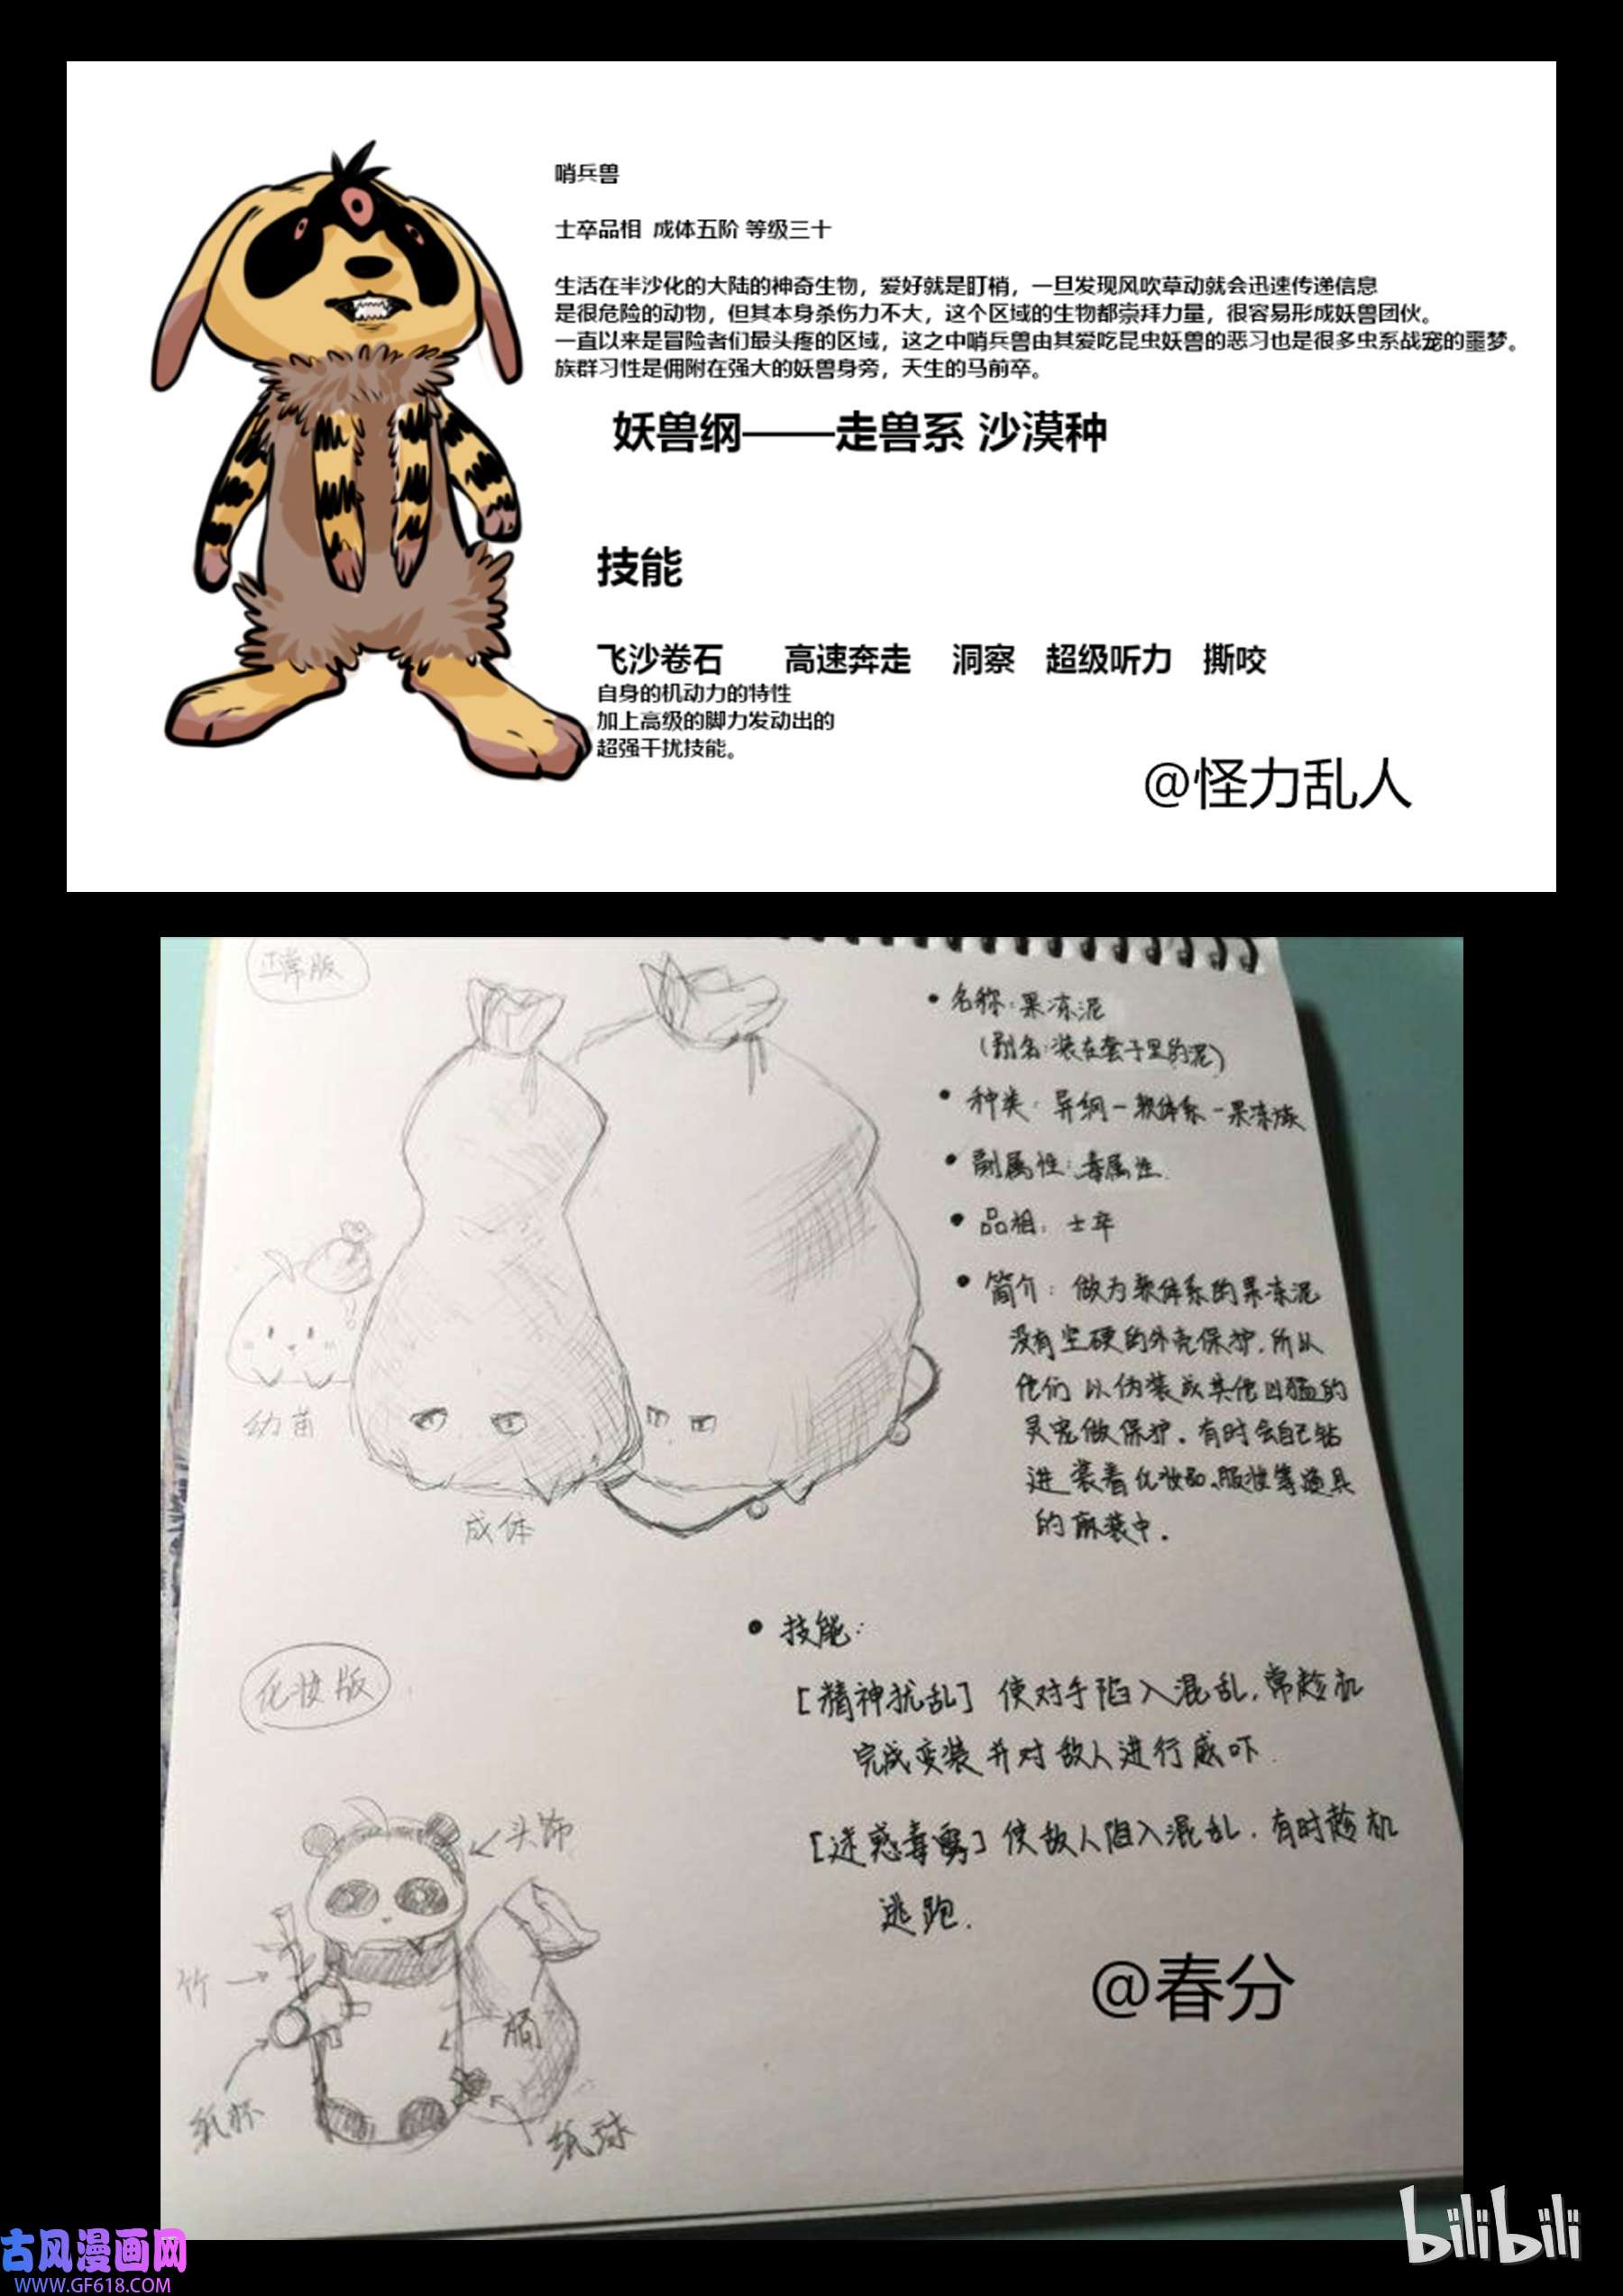 哨兵兽
士卒品相 成体五阶 等级三十
生活在半沙化的大陆的神奇生物，爱好就是盯梢，一旦发现风吹草动就会迅速传递信息
是很危险的动物，但其本身杀伤力不大，这个区域的生物都崇拜力量，很容易形成妖兽团伙。
一直以来是冒险者们最头疼的区域，这之中哨兵兽由其爱吃昆虫妖兽的恶习也是很多虫系战宠的噩梦。
族群习性是佣附在强大的妖兽身旁，天生的马前卒。
妖兽纲——走兽系 沙漠种
技能
飞沙卷石 高速奔走 洞察 超级听力 撕咬
自身的机动力的特性
加上高级的脚力发动出的
超强干扰技能。
@怪力乱人
正常版
• 名称：果冻泥
（别名：装在套子里的泥）
• 种类：异纲－软体系－果冻族
• 副属性：毒属性.
• 品相：士卒
• 简介：做为软体系的果冻泥
没有坚硬的外壳保护.所以
他们以伪装成其他凶猛的
灵宠做保护.有时会自己钻
进装着化妆品、服装等道具
的麻装中.
幼苗
成体
• 技能：
[精神扰乱] 使对手陷入混乱,常趁机
完成变装并对敌人进行威吓.
[迷惑毒雾] 使敌人陷入混乱.有时趁机
逃跑.
化妆版
头饰
竹
纸杯
纸球
@春分
bilibili
古风漫画网
WWW.GF618.COM